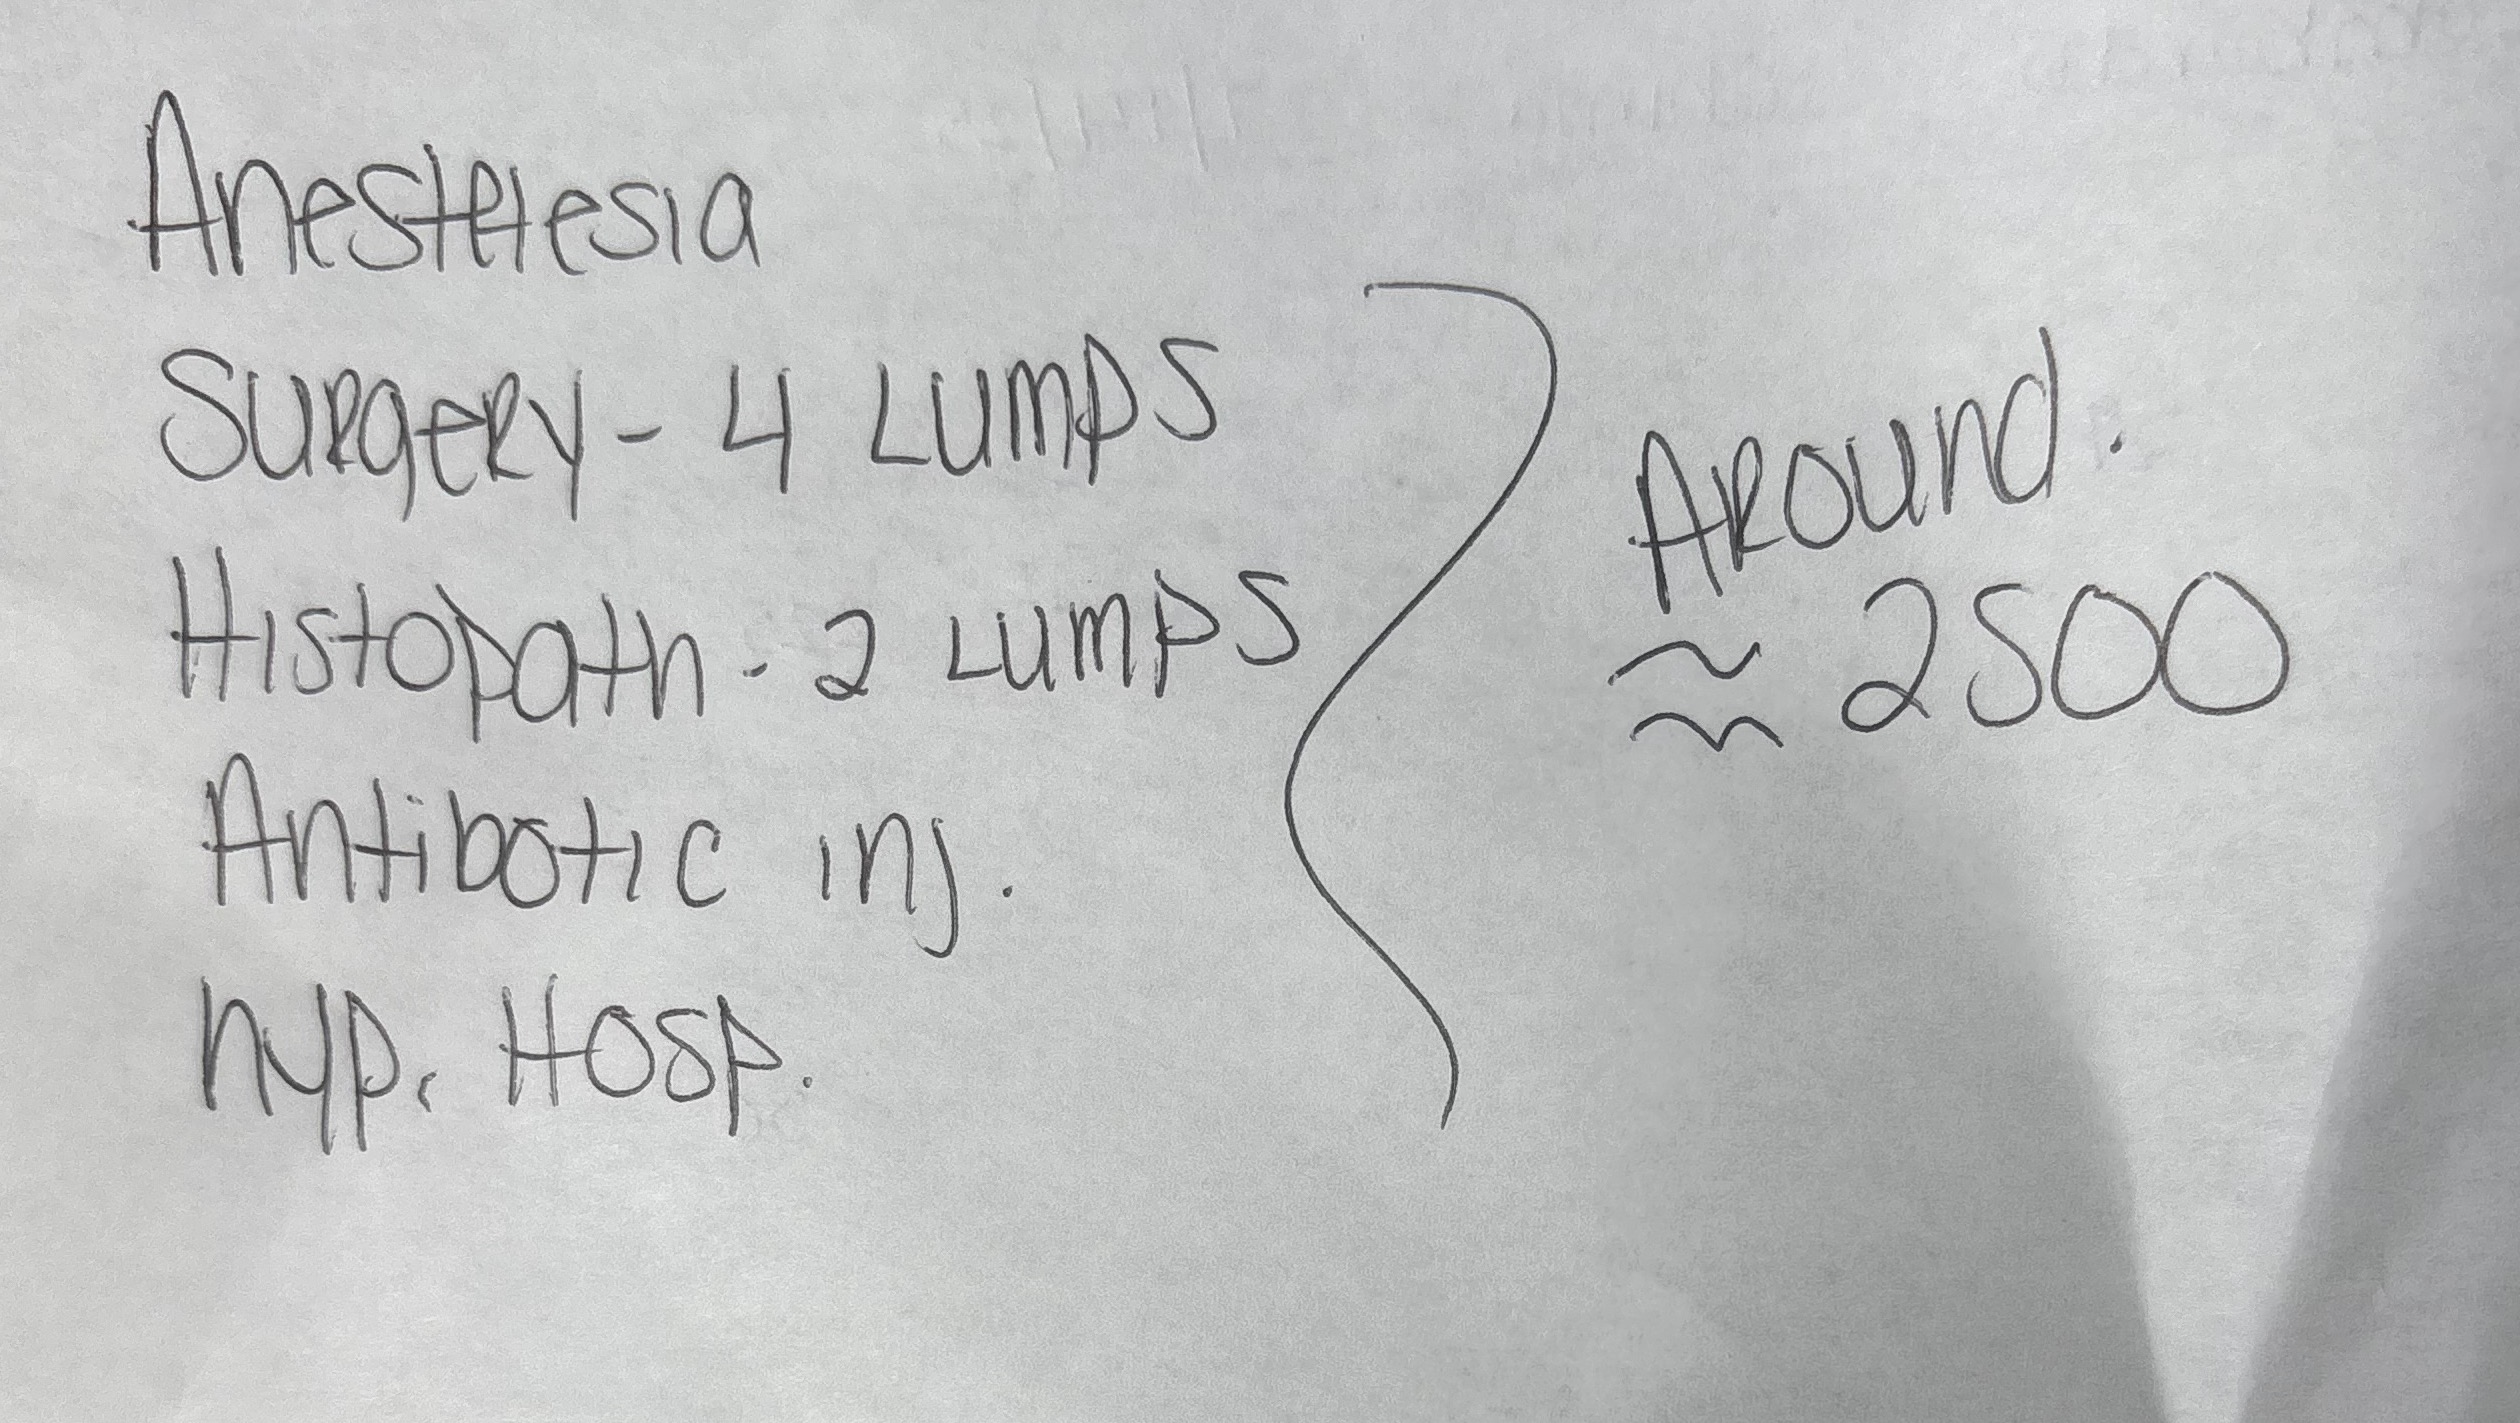 Anesthesia
Surgery - 4 Lumps
Histopath - 2 Lumps
Antibotic inj.
Hyp. Hosp.
Around.
≈ 2500